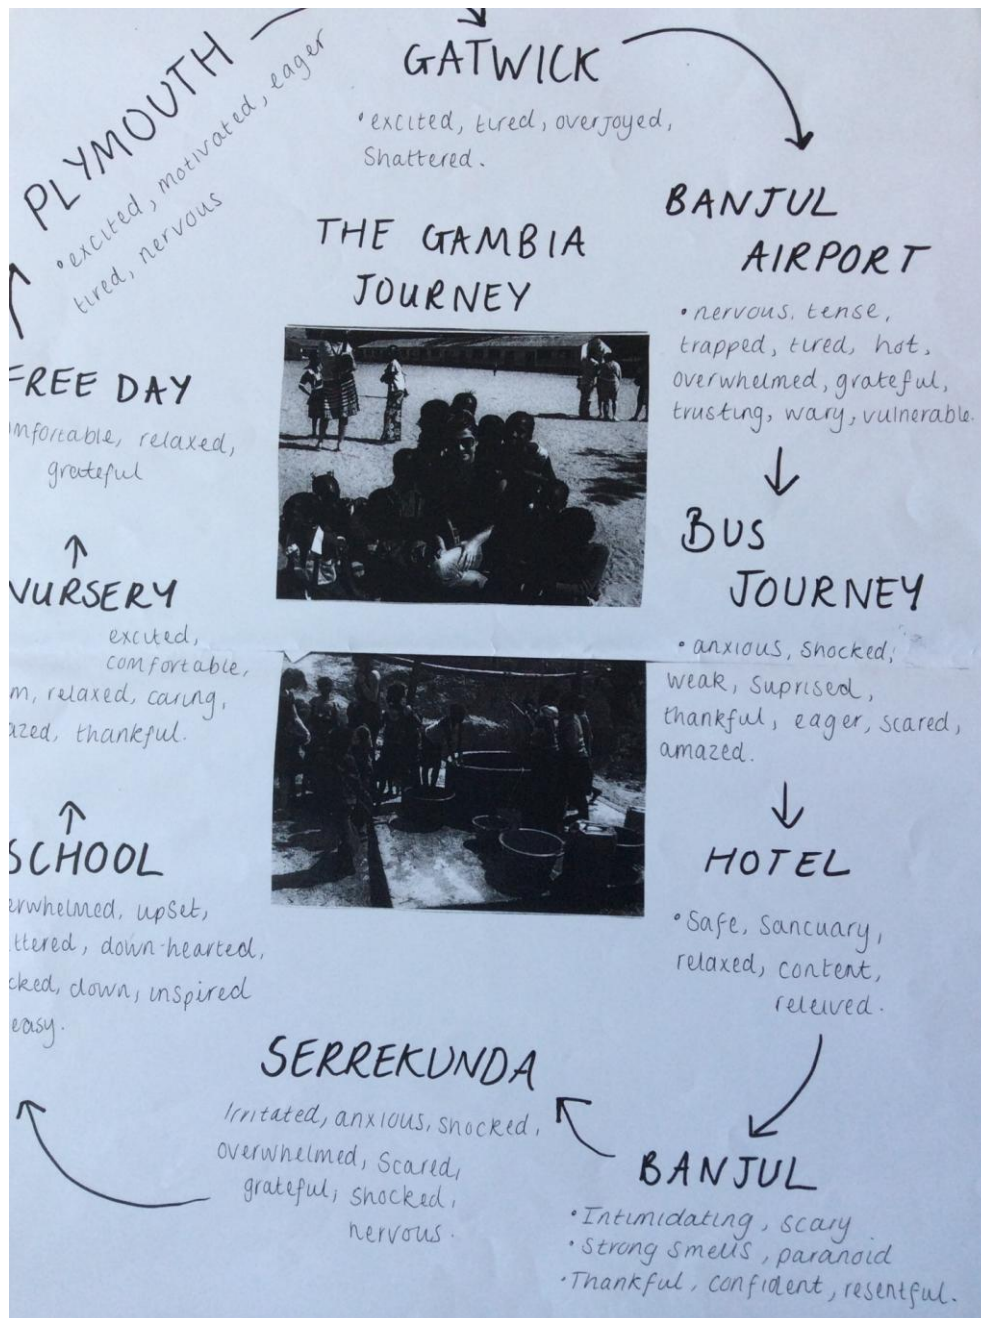 PLYMOUTH
•excited, motivated, eager
tired, nervous
GATWICK
•excited, tired, overjoyed,
Shattered.
BANJUL
AIRPORT
•nervous, tense,
trapped, tired, hot,
overwhelmed, grateful,
trusting, wary, vulnerable.
BUS
JOURNEY
•anxious, shocked,
weak, suprised,
thankful, eager, scared,
amazed.
HOTEL
•Safe, Sancuary,
relaxed, content,
releived.
BANJUL
•Intimidating, scary
•Strong smells, paranoid
•Thankful, confident, resentful.
SERREKUNDA
Irritated, anxious, shocked,
overwhelmed, Scared,
grateful, shocked,
nervous.
SCHOOL
erwhelmed, upset,
ttered, down-hearted,
cked, down, inspired
easy.
NURSERY
excited,
comfortable,
m, relaxed, caring,
azed, thankful.
FREE DAY
mfortable, relaxed,
grateful
THE GAMBIA
JOURNEY